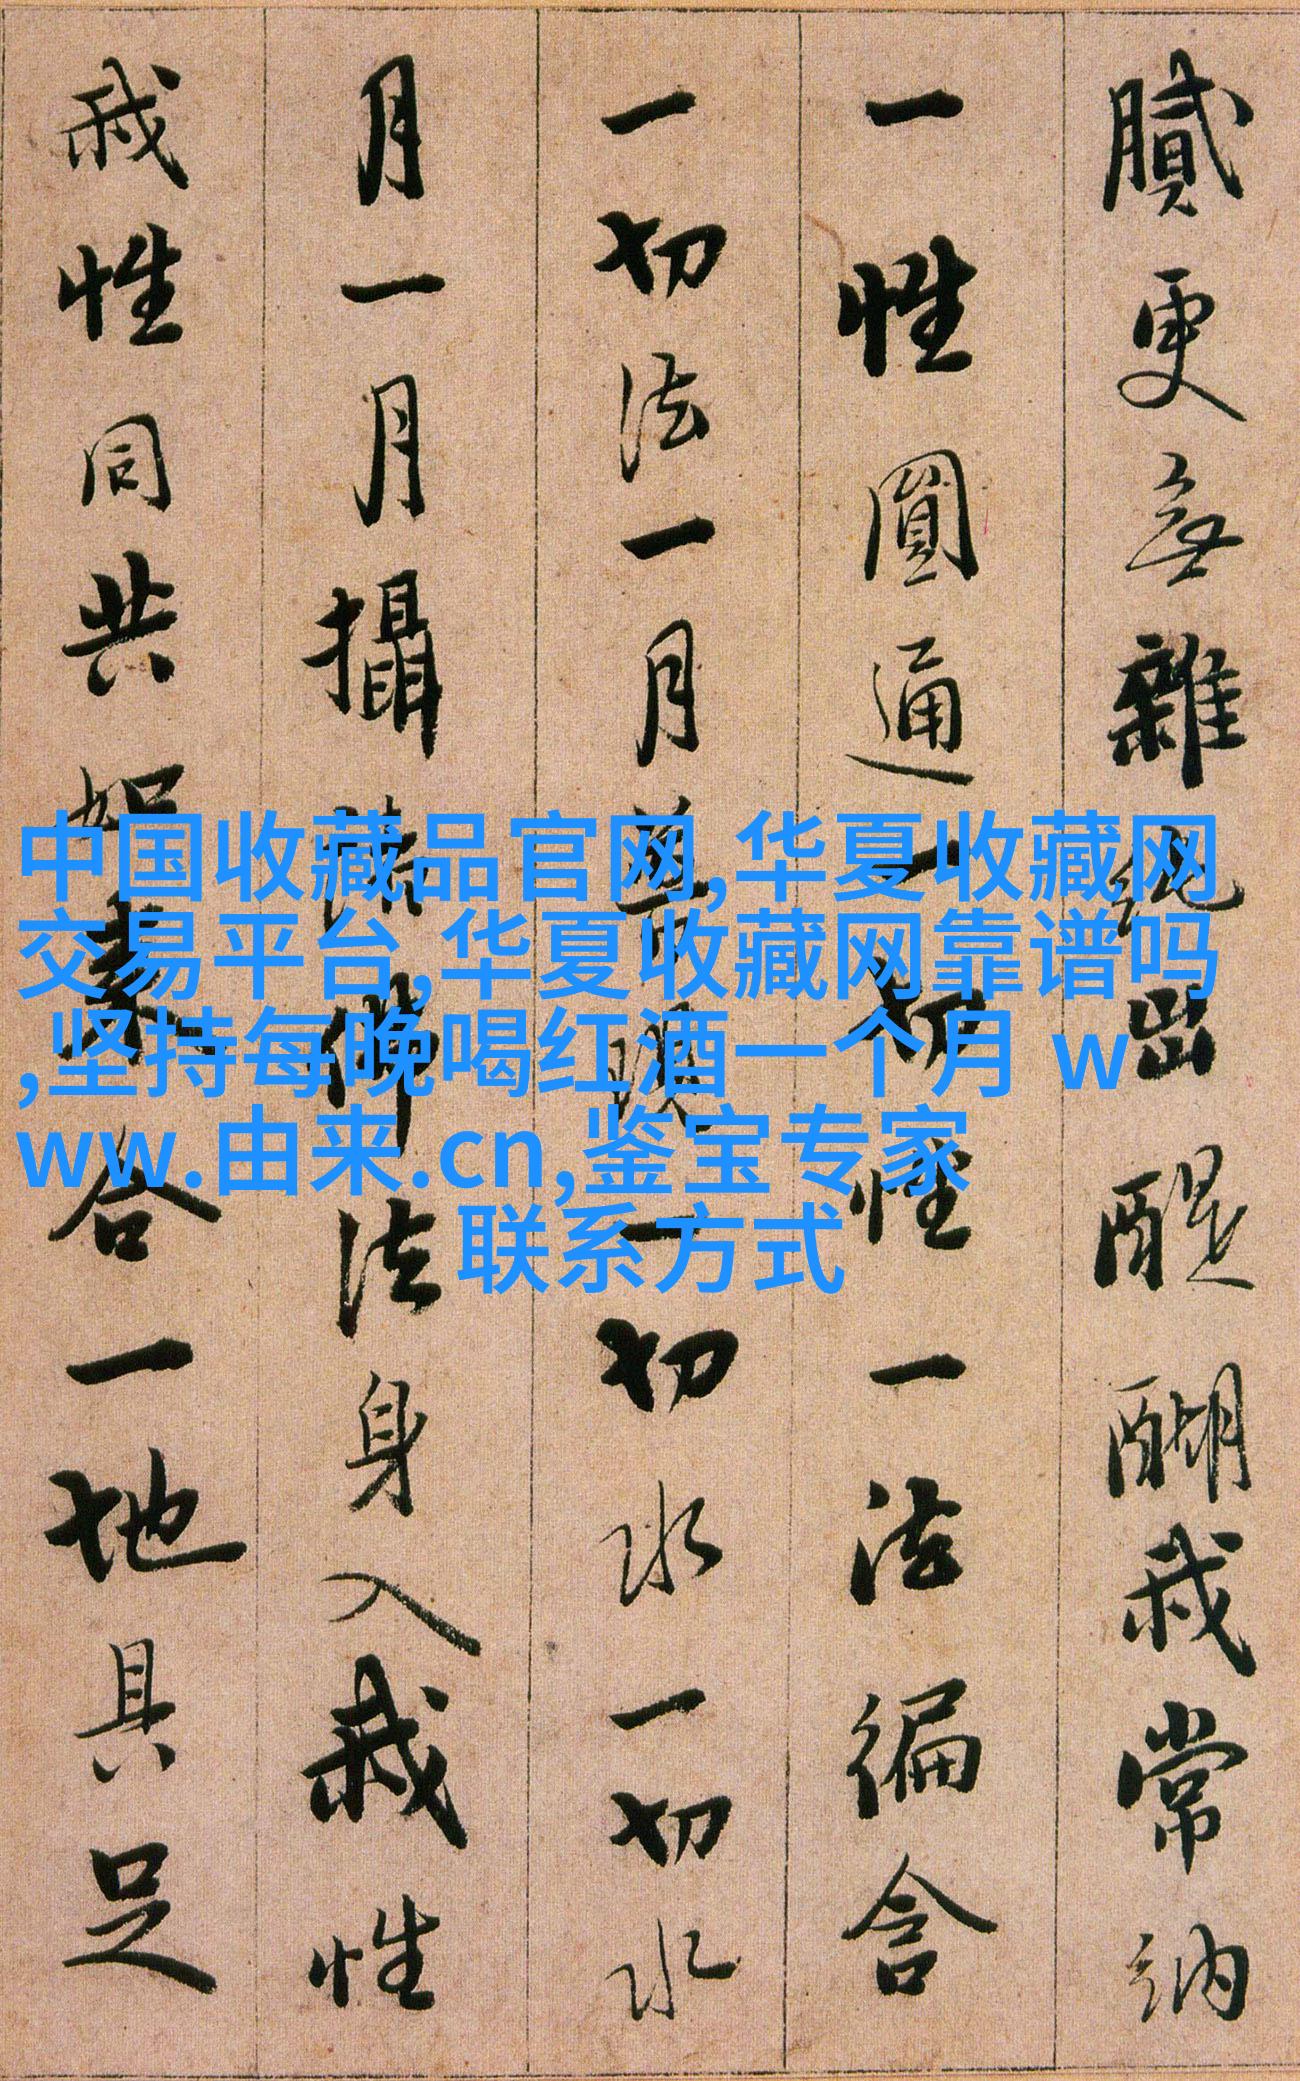 膩更無雜純出醍醐我常納
一性圓通一切性一法徧含
一切法一月普現一切水一切水
月一月攝諸佛法身入我性
我性同共如來合一地具足
中国收藏品官网,华夏收藏网
交易平台,华夏收藏网靠谱吗
,坚持每晚喝红酒一个月 w
ww.由来.cn,鉴宝专家
联系方式